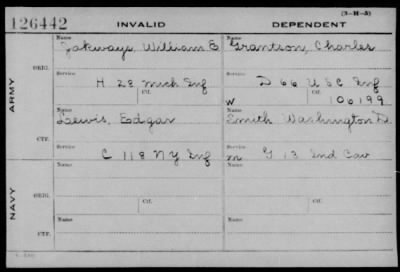 (3-H-5)
126442 INVALID DEPENDENT
Name Name
Jakways, William E Grantson, Charles
ORIG.
Service Service
H 28 Mich Inf D 66 U S C Inf
Ctf. Ctf.
W 106199
ARMY
Name Name
Lewis, Edgar Smith Washington D.
CTF.
Service Service
C 118 N Y Inf m G 13 Ind Cav
Name Name
ORIG.
Ctf. Ctf.
NAVY
Name Name
CTF.